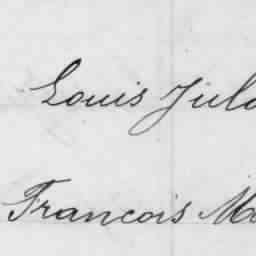 Louis Jula
Francois Ma